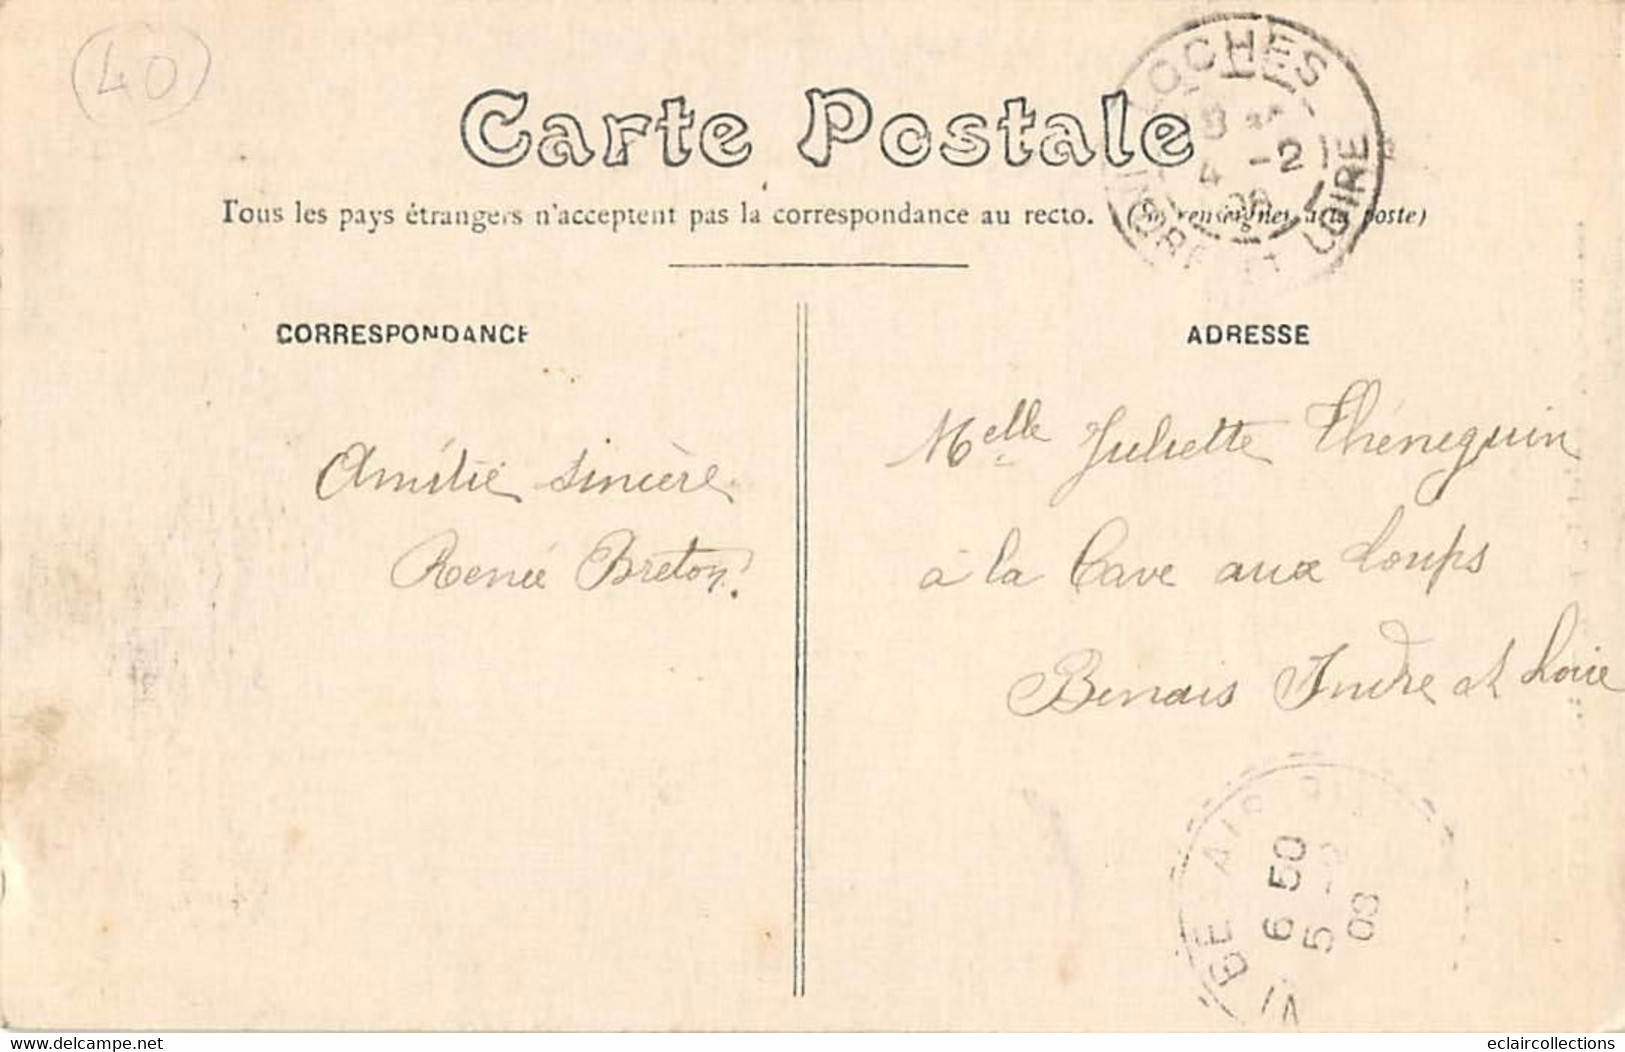 40
Carte Postale
Tous les pays étrangers n'acceptent pas la correspondance au recto. (Se renseigner à la poste)
LOCHES
4 -2
08
INDRE ET LOIRE
CORRESPONDANCE
ADRESSE
Amitié sincère
Renée Breton.
Melle Juliette Théneguin
à la Cave aux Loups
Benais Indre et Loire
6 50
5 -2
08
eclaircollections